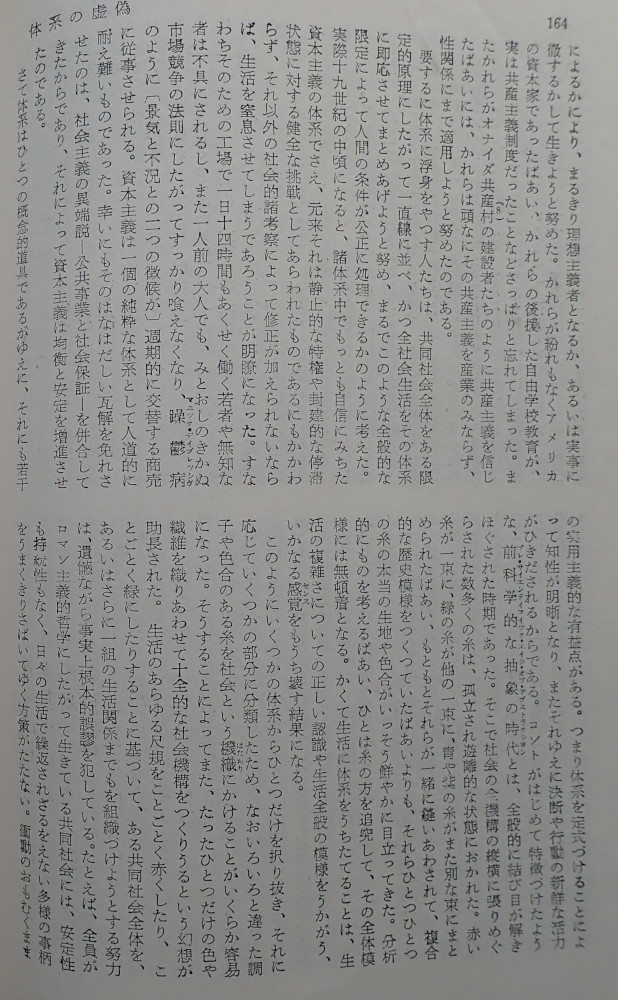 164
によるかにより、まるきり理想主義者となるか、あるいは実事に
徴するかして生きようと努めた。かれらが紛れもなくアメリカ
の資本家であったばあい、かれらの後援した自由学校教育が、
実は共産主義制度だったことなどさっぱりと忘れてしまった。ま
たかれらがオナイダ共産村の建設者たちのように共産主義を信じ
(8)
たばあいには、かれらは頑なにその共産主義を産業のみならず、
性関係にまで適用しようと努めたのである。
要するに体系に浮身をやつす人たちは、共同社会全体をある限
定的原理にしたがって一直線に並べ、かつ全社会生活をその体系
に即応させてまとめあげようと努め、まるでこのような全般的な
限定によって人間の条件が公正に処理できるかのように考えた。
実際十九世紀の中頃になると、諸体系中でもっとも自信にみちた
資本主義の体系でさえ、元来それは静止的な特権や封建的な停滞
状態に対する健全な挑戦としてあらわれたものであるにもかかわ
らず、それ以外の社会的諸考察によって修正が加えられないなら
ば、生活を窒息させてしまうであろうことが明瞭になった。すな
わちそのための工場で一日十四時間もあくせく働く若者や無知な
者は不具にされるし、また一人前の大人でも、みとおしのきかぬ
市場競争の法則にしたがってすっかり喰えなくなり、躁鬱病
のように〔景気と不況との二つの徴候が〕週期的に交替する商売
に従事させられる。資本主義は一個の純粋な体系として人道的に
耐え難いものであった。幸いにもそのはなはだしい瓦解を免れさ
せたのは、社会主義の異端説―公共事業と社会保証―を併合して
きたからであり、それによって資本主義は均衡と安定を増進させ
たのである。
さて体系はひとつの概念的道具であるがゆえに、それにも若干
体系の虚偽
の実用主義的な有益点がある。つまり体系を定式づけることによ
って知性が明晰となり、またそれゆえに決断や行動の新鮮な活力
がひきだされるからである。コントがはじめて特徴づけたよう
な、前科学的な抽象の時代とは、全般的に結び目が解き
ほぐされた時期であった。そこで社会の全機構の縦横に張りめぐ
らされた数多くの糸は、孤立され遊離的な状態におかれた。赤い
糸が一束に、緑の糸が他の一束に、青や紫の糸がまた別な束にまと
められたばあい、もともとそれらが一緒に縫いあわされて、複合
的な歴史模様をつくっていたばあいよりも、それらひとつひとつ
の糸の本当の生地や色合がいっそう鮮やかに目立ってきた。分析
的にものを考えるばあい、ひとは糸の方を追究して、その全体模
様には無頓着となる。かくて生活に体系をうちたてることは、生
活の複雑さについての正しい認識や生活全般の模様をうかがう、
いかなる感覚をもうち壊す結果になる。
このようにいくつかの体系からひとつだけを択り抜き、それに
応じていくつかの部分に分類したため、なおいろいろと違った調
子や色合のある糸を社会という機織にかけることがいくらか容易
になった。そうすることによってまた、たったひとつだけの色や
繊維を織りあわせて十全的な社会機構をつくりうるという幻想が
助長された。生活のあらゆる尺規をことごとく赤くしたり、こ
とごとく緑にしたりすることに基づいて、ある共同社会全体を、
あるいはさらに一組の生活関係までもを組織づけようとする努力
は、遺憾ながら事実上根本的誤謬を犯している。たとえば、全員が
ロマン主義的哲学にしたがって生きている共同社会には、安定性
も持続性もなく、日々の生活で繰返されざるをえない多様の事柄
をうまくきりさばいてゆく方策がたたない。衝動のおもむくまま